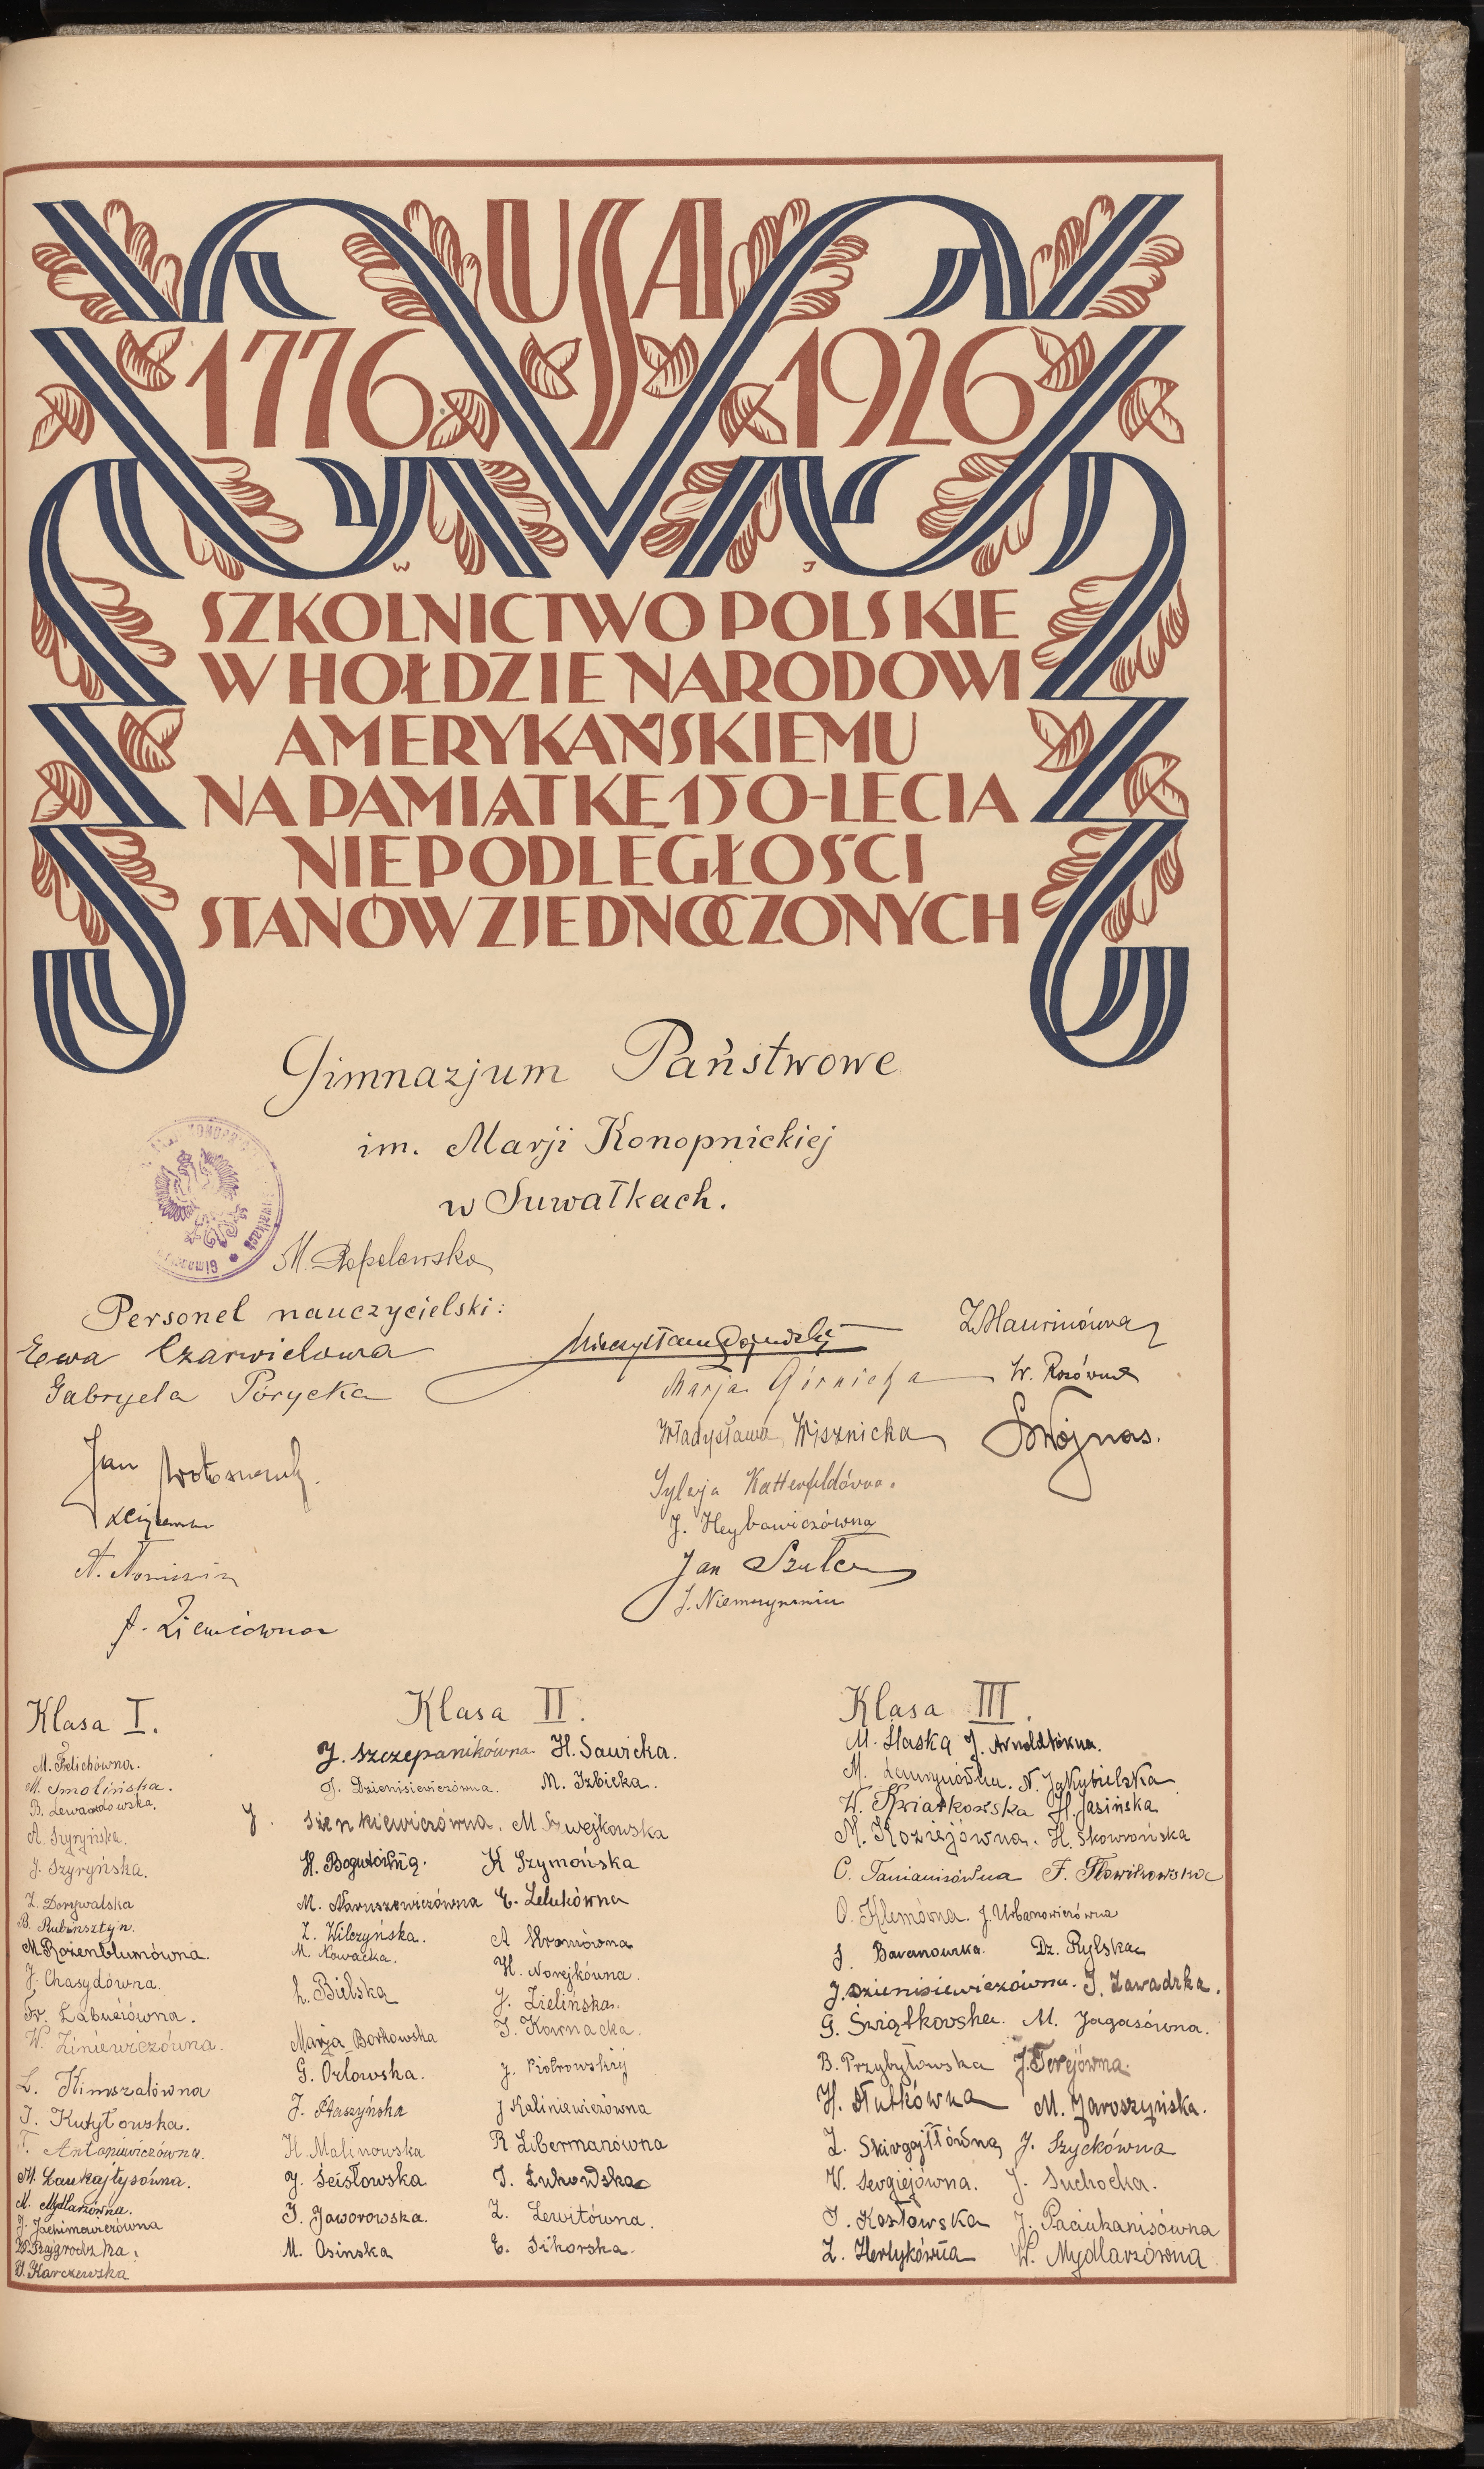 USA
1776 1926
W J
SZKOLNICTWO POLSKIE
W HOŁDZIE NARODOWI
AMERYKAŃSKIEMU
NA PAMIĄTKĘ 150-LECIA
NIEPODLEGŁOŚCI
STANÓW ZJEDNOCZONYCH
Gimnazjum Państwowe
im. Marji Konopnickiej
w Suwałkach.
M.
Personel nauczycielski:
Ewa Czarwielowa
Gabryela Porycka
Jan
A.
A. Ziemcówna
Marja Górnicka
Władysława Wisznicka
Sylwja Kattenfeldówna.
J. Heybowiczówna
Jan Szulc
J.
W. Rosówna
S. Wojnas.
Klasa I.
M. Felichówna.
M. Smolińska.
B. Lewandowska.
A. Szyryńska.
J. Szyryńska.
Z. Dorywalska
B. Rubinsztyn.
M. Rozenblumówna.
J. Chasydówna.
Fr. Łabuciówna.
W. Ziniewiczówna.
L. Kimszalówna
J. Kutyłowska.
T. Antoniewiczówna.
M. Laukajtysówna.
M. Mydlarzówna.
J. Jachimowiczówna
W. Rajgrodzka.
J. Karczewska
Klasa II.
J. Szczepanikówna. H. Sawicka.
J. Dzienisiewiczówna. M. Izbicka.
J. Sienkiewiczówna. M Szwejkowska
H. Bogutówna. K Szymońska
M. Naruszewiczówna E. Lelukówna
Z. Wilczyńska. A Hromówna
M. Nowacka.
H. Norejkówna.
L. Bielska J. Zielińska.
Marja Borkowska J. Kownacka.
G. Orłowska. J. Piotrowskiej
J. Staszyńska J Kaliniewiczówna
H. Malinowska R Libermanówna
J. Ścisłowska J. Żukowska
J. Jaworowska. Z. Lewitówna.
M. Osinska E. Sikorska.
Klasa III.
M. Haska J. Arnoldtówna.
M. N. Jakubielska
W. Kwiatkowska H. Jasińska
M. Koziejówna. H. Skowrońska
C. Tamanisówna F. Słowikowska
O. Klemówna. J. Urbanowiczówna
J. Baranowska. Dz. Rylska
J. Dzienisiewiczówna. J. Zawadzka.
G. Świątkovska. M. Jagasówna.
B. Przybyłowska J. Terejówna.
H. Słubkówna M. Jaroszyńska.
Z. Skirgajłłówna J. Szyckówna
W. Sergiejówna. J. Suchocka.
J. Kozłowska J. Paciukanisówna
Z. Hertykówna W. Mydlarzówna